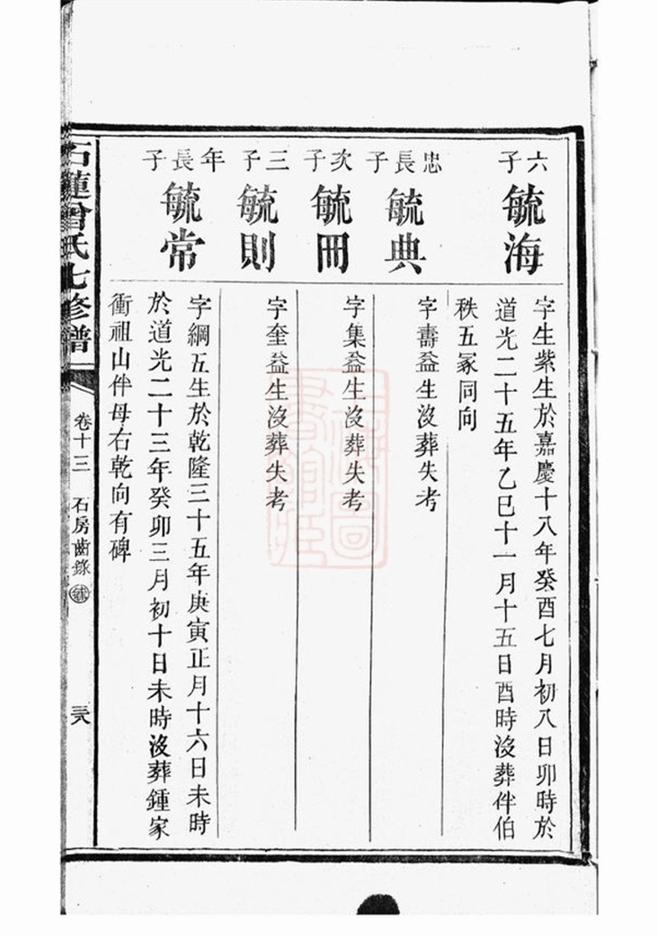 六子
毓海
字生紫生於嘉慶十八年癸酉七月初八日卯時於
道光二十五年乙巳十一月十五日酉時沒葬伴伯
秩五冢同向
忠長子
毓典
字壽益生沒葬失考
次子
毓冊
字集益生沒葬失考
三子
毓則
字奎益生沒葬失考
年長子
毓常
字綱五生於乾隆三十五年庚寅正月十六日未時
於道光二十三年癸卯三月初十日未時沒葬鍾家
衝祖山伴母右乾向有碑
石蓮曾氏七修譜
卷十三
石房齒錄